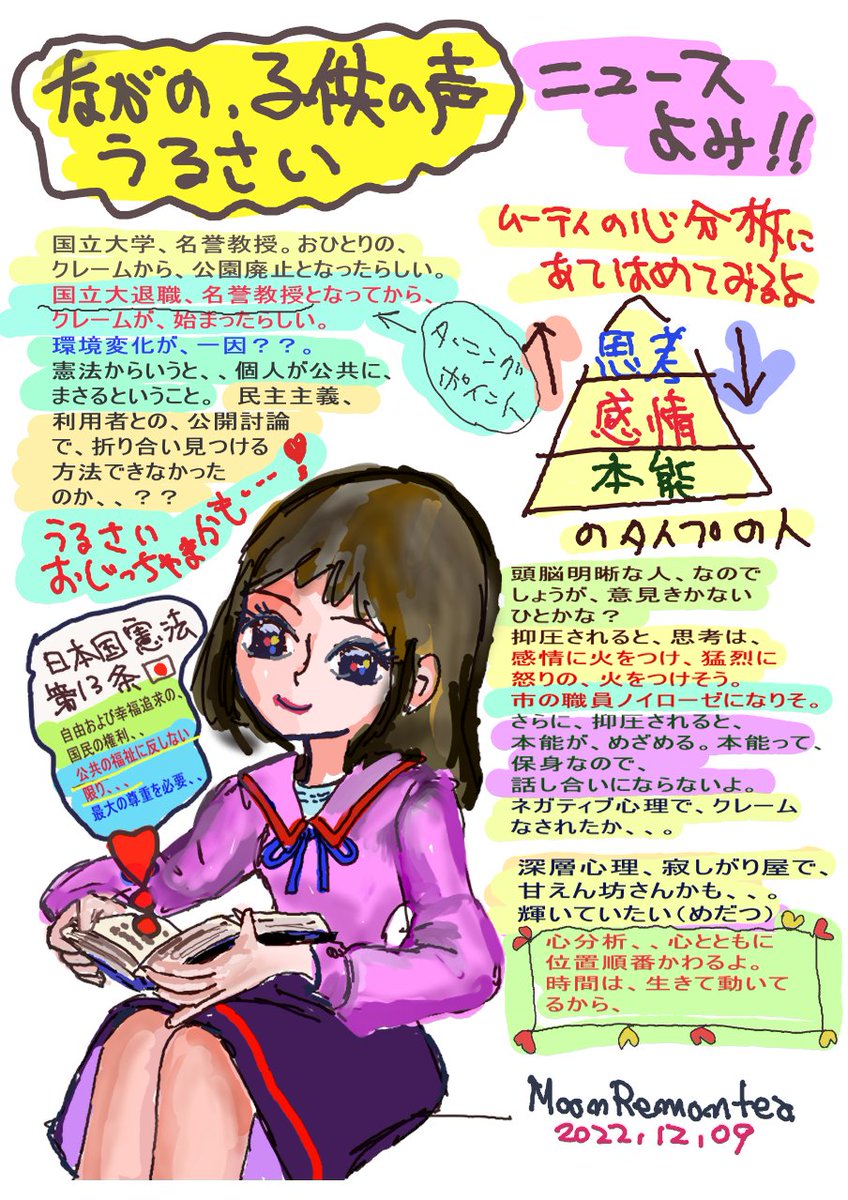 ながの、子供の声
うるさい
ニュース
よみ!!
国立大学、名誉教授。おひとりの、
クレームから、公園廃止となったらしい。
国立大退職、名誉教授となってから、
クレームが、始まったらしい。
環境変化が、一因??。
憲法からいうと、、個人が公共に、
まさるということ。 民主主義、
利用者との、公開討論
で、折り合い見つける
方法できなかった
のか、、??
ターニング
ポイント
うるさい
おじっちゃまかも・・・!
ムーティの心分析に
あてはめてみるよ
思考
感情
本能
のタイプの人
頭脳明晰な人、なので
しょうが、意見きかない
ひとかな?
抑圧されると、思考は、
感情に火をつけ、猛烈に
怒りの、火をつけそう。
市の職員ノイローゼになりそ。
さらに、抑圧されると、
本能が、めざめる。本能って、
保身なので、
話し合いにならないよ。
ネガティブ心理で、クレーム
なされたか、、。
深層心理、寂しがり屋で、
甘えん坊さんかも、、、。
輝いていたい(めだつ)
心分析、、心とともに
位置順番かわるよ。
時間は、生きて動いて
るから、
日本国憲法
第13条
自由および幸福追求の、
国民の権利、、
公共の福祉に反しない
限り、、、
最大の尊重を必要、、
MoonRemontea
2022,12,09